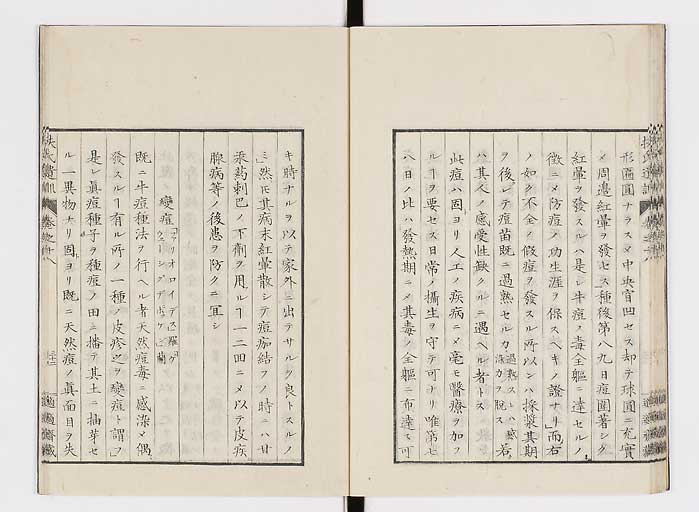 形匾圓ナラスメ中央窅凹セス却テ球圓ニ充實
メ周邉紅暈ヲ發セス種後第八九日痘圍著シク
紅暈ヲ發スルハ是レ牛痘ノ毒全軀ニ達セルノ
徴ニメ防痘ノ功生涯ヲ保スヘキノ證ナリ」而右
ノ如ク不全ノ假痘ヲ發スル所以ンハ採漿其期
ヲ後レテ痘苗既ニ過熟セルカ過熟スレハ感染力ヲ脱ス若
ハ其人ノ感受性缺クルニ遇ヘル者トス
此痘ハ固ヨリ人工ノ疾病ニメ毫モ醫療ヲ加フ
ルヿヲ要セス日常ノ攝生ヲ守テ可ナリ唯第七
八日ノ比ハ發熱期ニメ其毒ノ全軀ニ布達ス可
キ時ナルヲ以テ家外ニ出テサルヲ良トスルノ
ミ然ヒ其病末紅暈散シテ痘痂結フノ時ニハ甘
汞葯刺巴ノ下劑ヲ用ルヿ一二回ニメ以テ皮疾
腺病等ノ後患ヲ防クニ冝シ
變痘
既ニ牛痘種法ヲ行ヘル者天然痘毒ニ感染メ偶
發スルヿ有ル所ノ一種ノ皮疹之ヲ變痘ト謂フ」
是レ眞痘種子ヲ種痘ノ田ニ播テ其土ニ抽芽セ
ル一異物ナリ固ヨリ既ニ天然痘ノ眞面目ヲ失
扶氏遺訓 卷之十八
適適齋藏